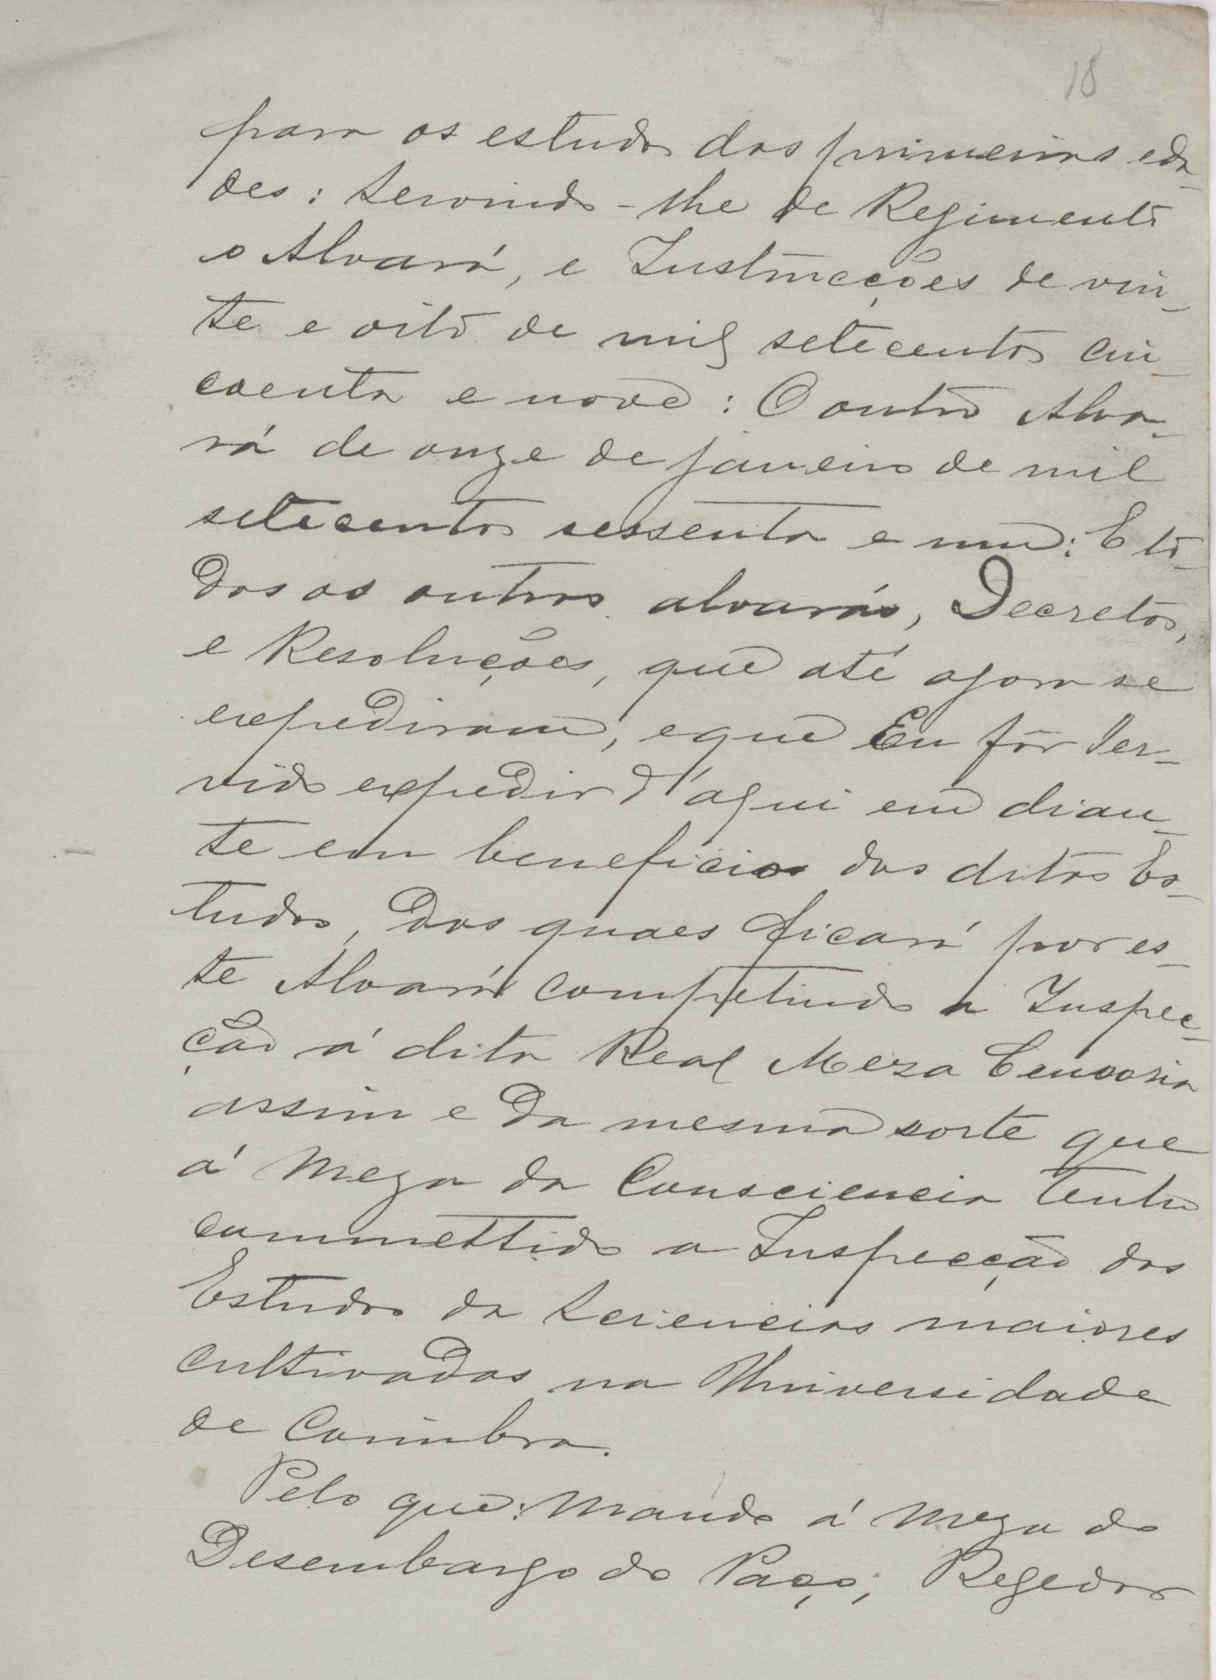 18
para os estudos das primeiras eda-
des: Servindo-lhe de Regimento
o Alvará, e Instrucções de vin-
te e oito de mil setecentos cin-
coenta e nove: O outro Alva-
rá de onze de janeiro de mil
setecentos sessenta e um: E to-
dos os outros alvarás, Decretos,
e Resoluções, que até agora se
expediram, e que Eu fôr Ser-
vido expedir d'aqui em dian-
te em beneficio dos ditos Es-
tudos, Dos quaes ficará por es-
te Alvará competindo a Inspec-
ção á dita Real Meza Censoria
assim e da mesma sorte que
á Meza da Consciencia tenho
commettido a Inspecção dos
Estudos da Sciencias maiores
cultivadas na Universidade
de Coimbra.
Pelo que: Mando á Meza do
Desembargo do Paço; Regedor